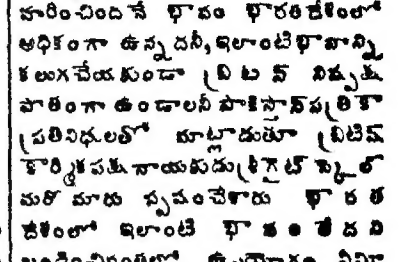 హరించిందనే భావం భారతదేశంలో
అధికంగా ఉన్నదనీ, ఇలాంటి భావాన్ని
కలుగచేయకుండా బ్రిటన్ నిష్పక్ష
పాతంగా ఉండాలనీ పాకిస్తాన్ పత్రికా
ప్రతినిధులతో మాట్లాడుతూ బ్రిటిష్
కార్మికపక్ష నాయకుడు శ్రీ గైట్ స్కెల్
మరో మారు స్పష్టంచేశారు భారత
దేశంలో ఇలాంటి భావం లేదని